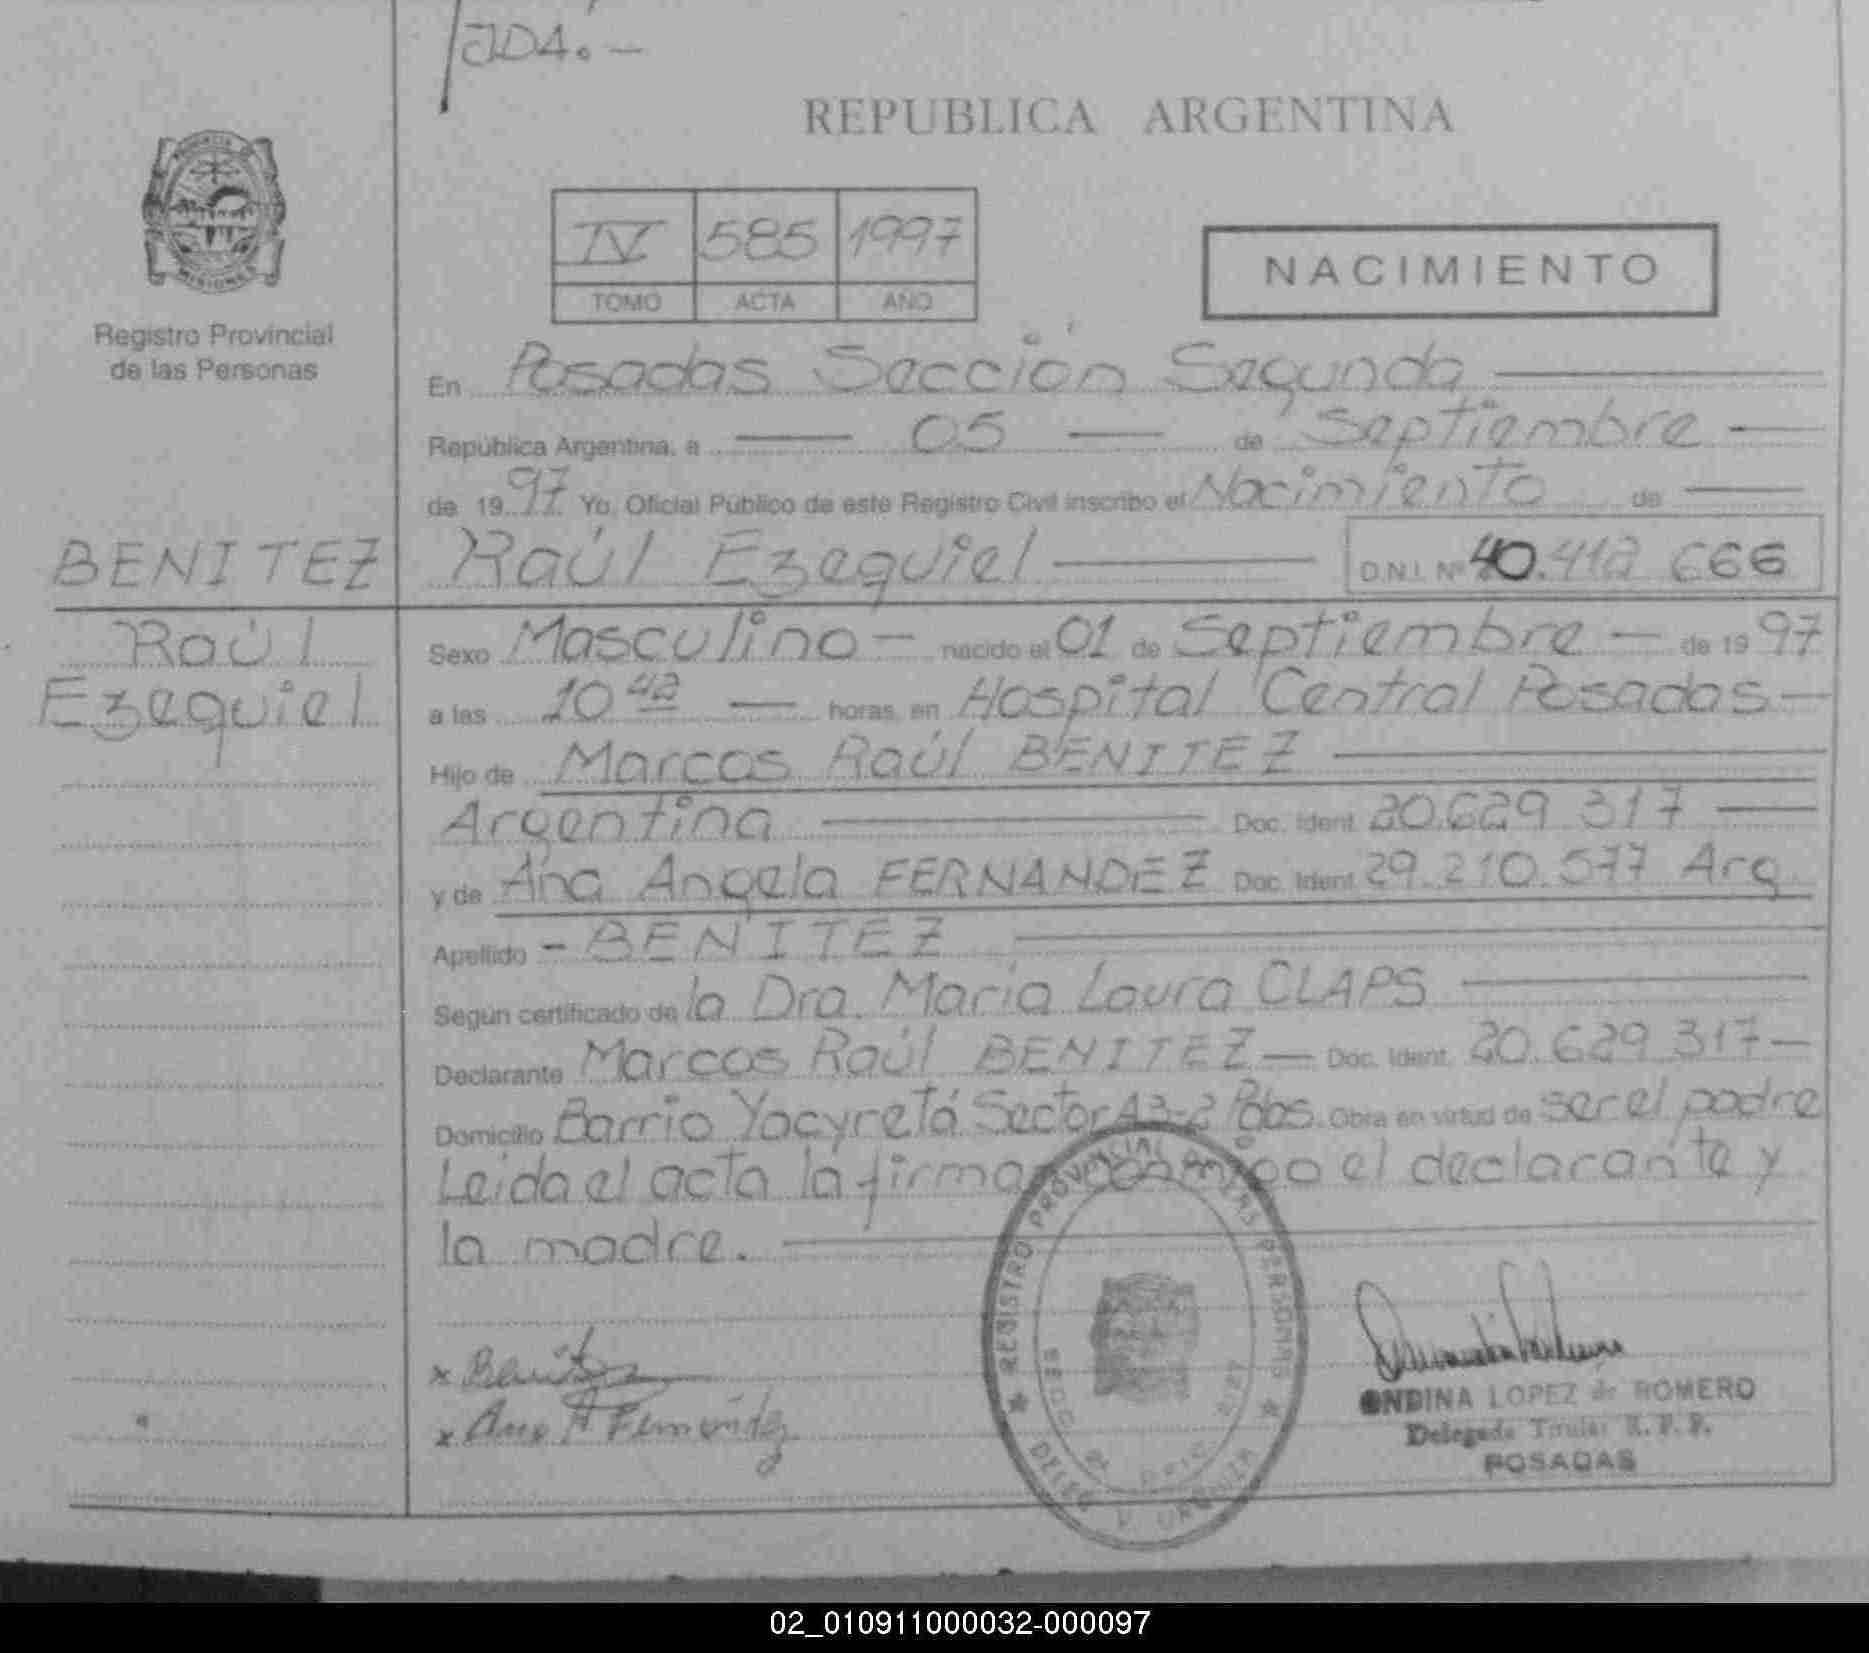 JDA.-
REPUBLICA ARGENTINA
MISIONES
Registro Provincial
de las Personas
IV 585 1997
TOMO ACTA AÑO
NACIMIENTO
En Posadas Sección Segunda
República Argentina, a 05 de Septiembre
de 1997 Yo, Oficial Público de este Registro Civil inscribo el Nacimiento de
BENITEZ Raúl Ezequiel D.N.I. Nº 40.412 666
Raúl
Ezequiel
Sexo Masculino - nacido el 01 de Septiembre - de 1997
a las 10 42 horas, en Hospital Central Posadas -
Hijo de Marcos Raúl BENITEZ
Argentina Doc. Ident. 20.629 317
y de Ana Angela FERNANDEZ Doc. Ident. 29.210.577 Arg.
Apellido - BENITEZ
Según certificado de la Dra. María Laura CLAPS
Declarante Marcos Raúl BENITEZ - Doc. Ident. 20.629 317 -
Domicilio Barrio Yacyretá Sector A3-2 Pdas. Obra en virtud de ser el padre
Leida el acta la firman conmigo el declarante y
la madre.
REGISTRO PROVINCIAL DE LAS PERSONAS
x Benitez
x Ana A Fernández
ONDINA LOPEZ de ROMERO
Delegada Titular R. P. P.
POSADAS
02_010911000032-000097